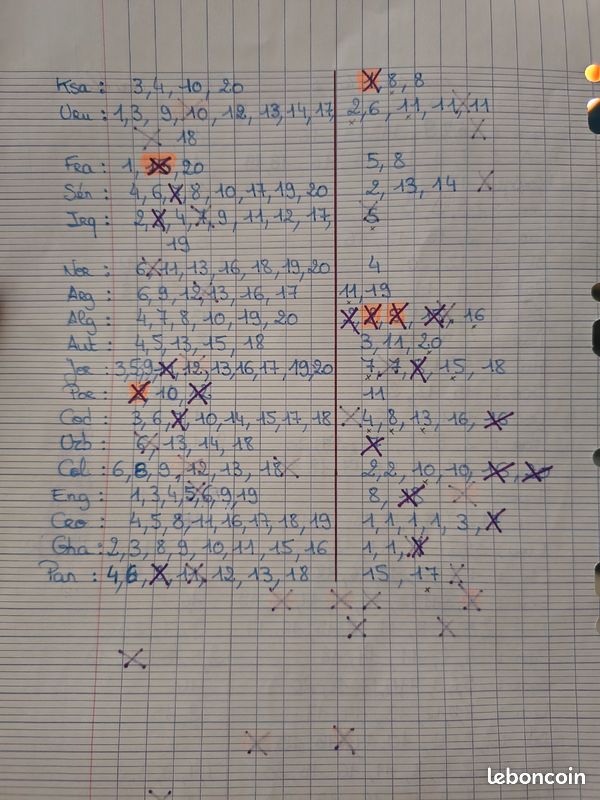 Ksa : 3, 4, 10, 20 8, 8
Uru : 1, 3, 9, 10, 12, 13, 14, 17, 2, 6, 11, 11, 11
18
Fra : 1, 20 5, 8
Sén : 4, 6, 8, 10, 17, 19, 20 2, 13, 14
Irq : 2, 4, 7, 9, 11, 12, 17, 5
19
Nor : 6, 11, 13, 16, 18, 19, 20 4
Arg : 6, 9, 12, 13, 16, 17 11, 19
Alg : 4, 7, 8, 10, 19, 20 16
Aut : 4, 5, 13, 15, 18 3, 11, 20
Jor : 3, 5, 9, 12, 13, 16, 17, 19, 20 7, 7, 15, 18
Por : 10, 11
Cod : 3, 6, 10, 14, 15, 17, 18 4, 8, 13, 16, 16
Uzb : 6, 13, 14, 18
Col : 6, 8, 9, 12, 13, 18 2, 2, 10, 10,
Eng : 1, 3, 4, 5, 6, 9, 19 8,
Cro : 4, 5, 8, 11, 16, 17, 18, 19 1, 1, 1, 1, 3,
Gha : 2, 3, 8, 9, 10, 11, 15, 16 1, 1,
Pan : 4, 6, 11, 12, 13, 18 15, 17
leboncoin